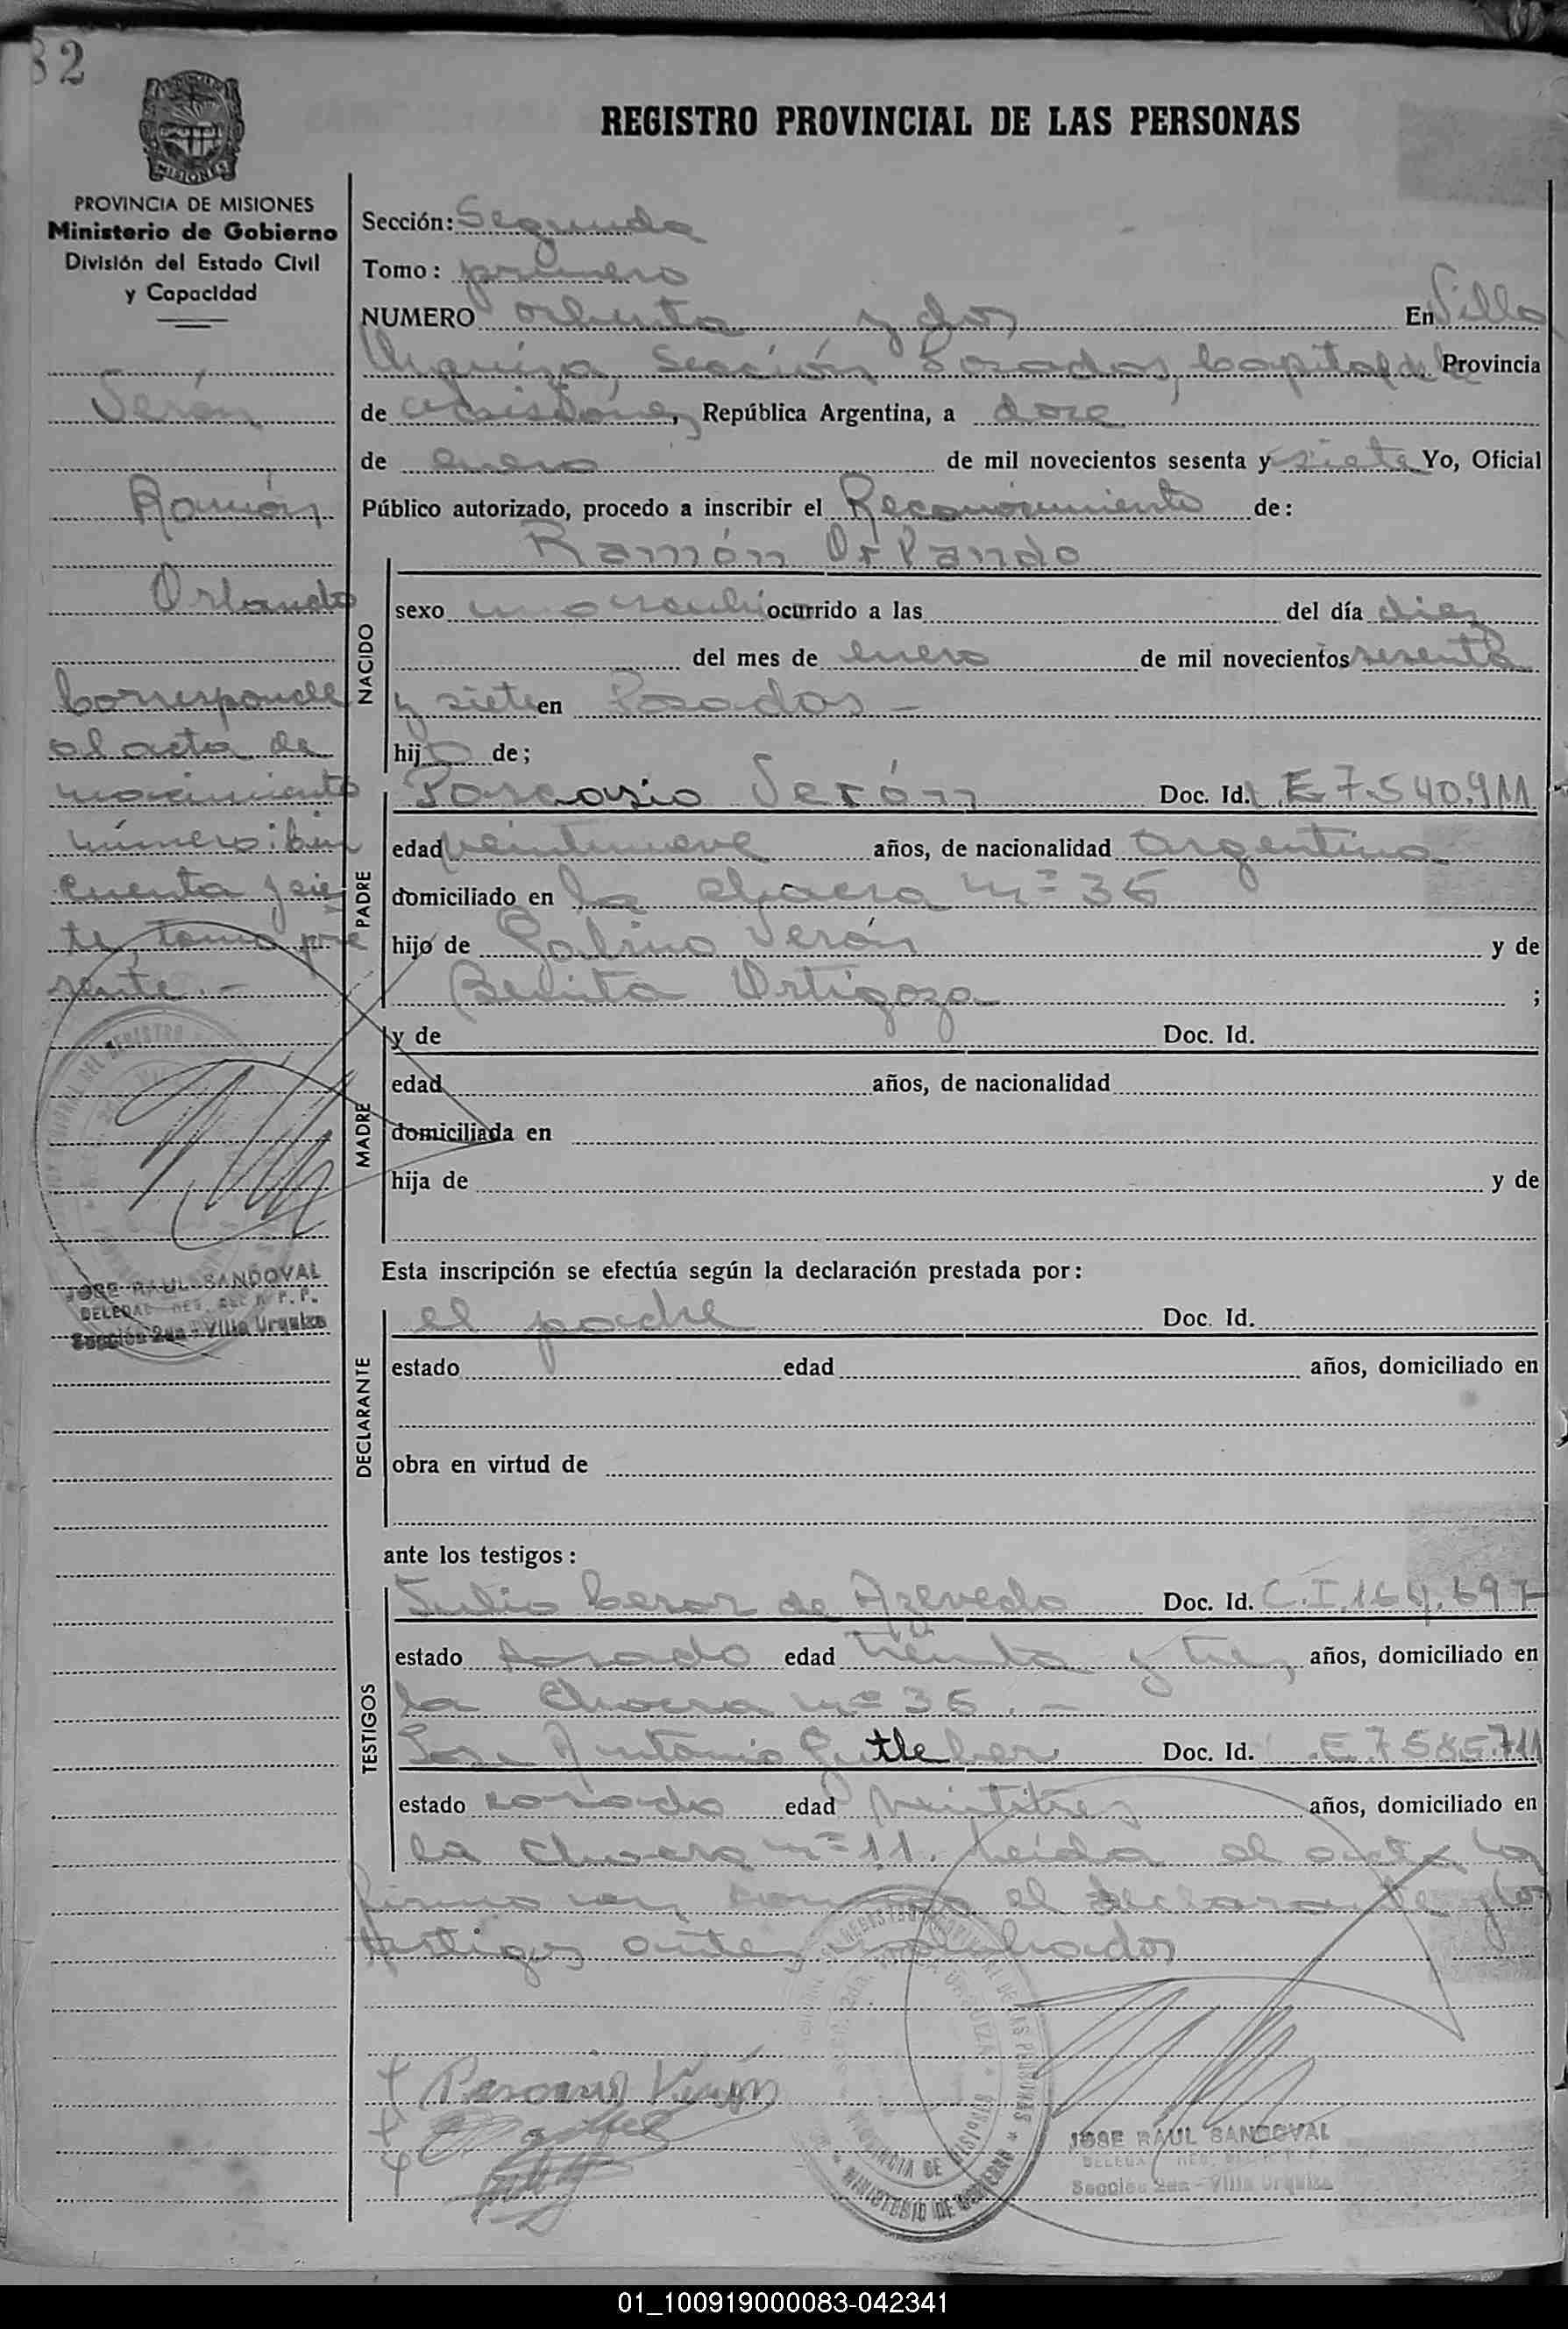 82
MISIONES
PROVINCIA DE MISIONES
Ministerio de Gobierno
División del Estado Civil
y Capacidad
Verón
Ramón
Orlando
Corresponde
al acta de
nacimiento
número: cin
cuenta y sie
te, tomo pre
sente.-
JOSE RAUL SANDOVAL
Sección 2da - Villa Urquiza
REGISTRO PROVINCIAL DE LAS PERSONAS
Sección: Segunda
Tomo: primero
NUMERO ochenta y dos En Villa
Urquiza, Sección Posadas, Capital de la Provincia
de Misiones, República Argentina, a doce
de enero de mil novecientos sesenta y siete Yo, Oficial
Público autorizado, procedo a inscribir el Reconocimiento de:
Ramón Orlando
NACIDO
sexo masculino ocurrido a las del día diez
del mes de enero de mil novecientos sesenta
y siete en Posadas -
hijo de;
PADRE
Pascasio Verón Doc. Id. L.E 7.540.911
edad veintinueve años, de nacionalidad argentina
domiciliado en la chacra nº 36
hijo de Verón y de
Benita Ortigoza ;
MADRE
y de Doc. Id.
edad años, de nacionalidad
domiciliada en
hija de y de
Esta inscripción se efectúa según la declaración prestada por:
DECLARANTE
el padre Doc. Id.
estado edad años, domiciliado en
obra en virtud de
ante los testigos:
TESTIGOS
Julio Cesar de Azevedo Doc. Id. C.I.164.697
estado casado edad treinta y tres años, domiciliado en
la chacra nº 36.-
Jose Antonio Doc. Id. .E.7585.711
estado casado edad veintitres años, domiciliado en
la chacra nº 11. Leída el acta la
firman conmigo el declarante y los
testigos antes nombrados
Pascasio Verón
JOSE RAUL SANDOVAL
Sección 2da - Villa Urquiza
MINISTERIO DE GOBIERNO
01_100919000083-042341